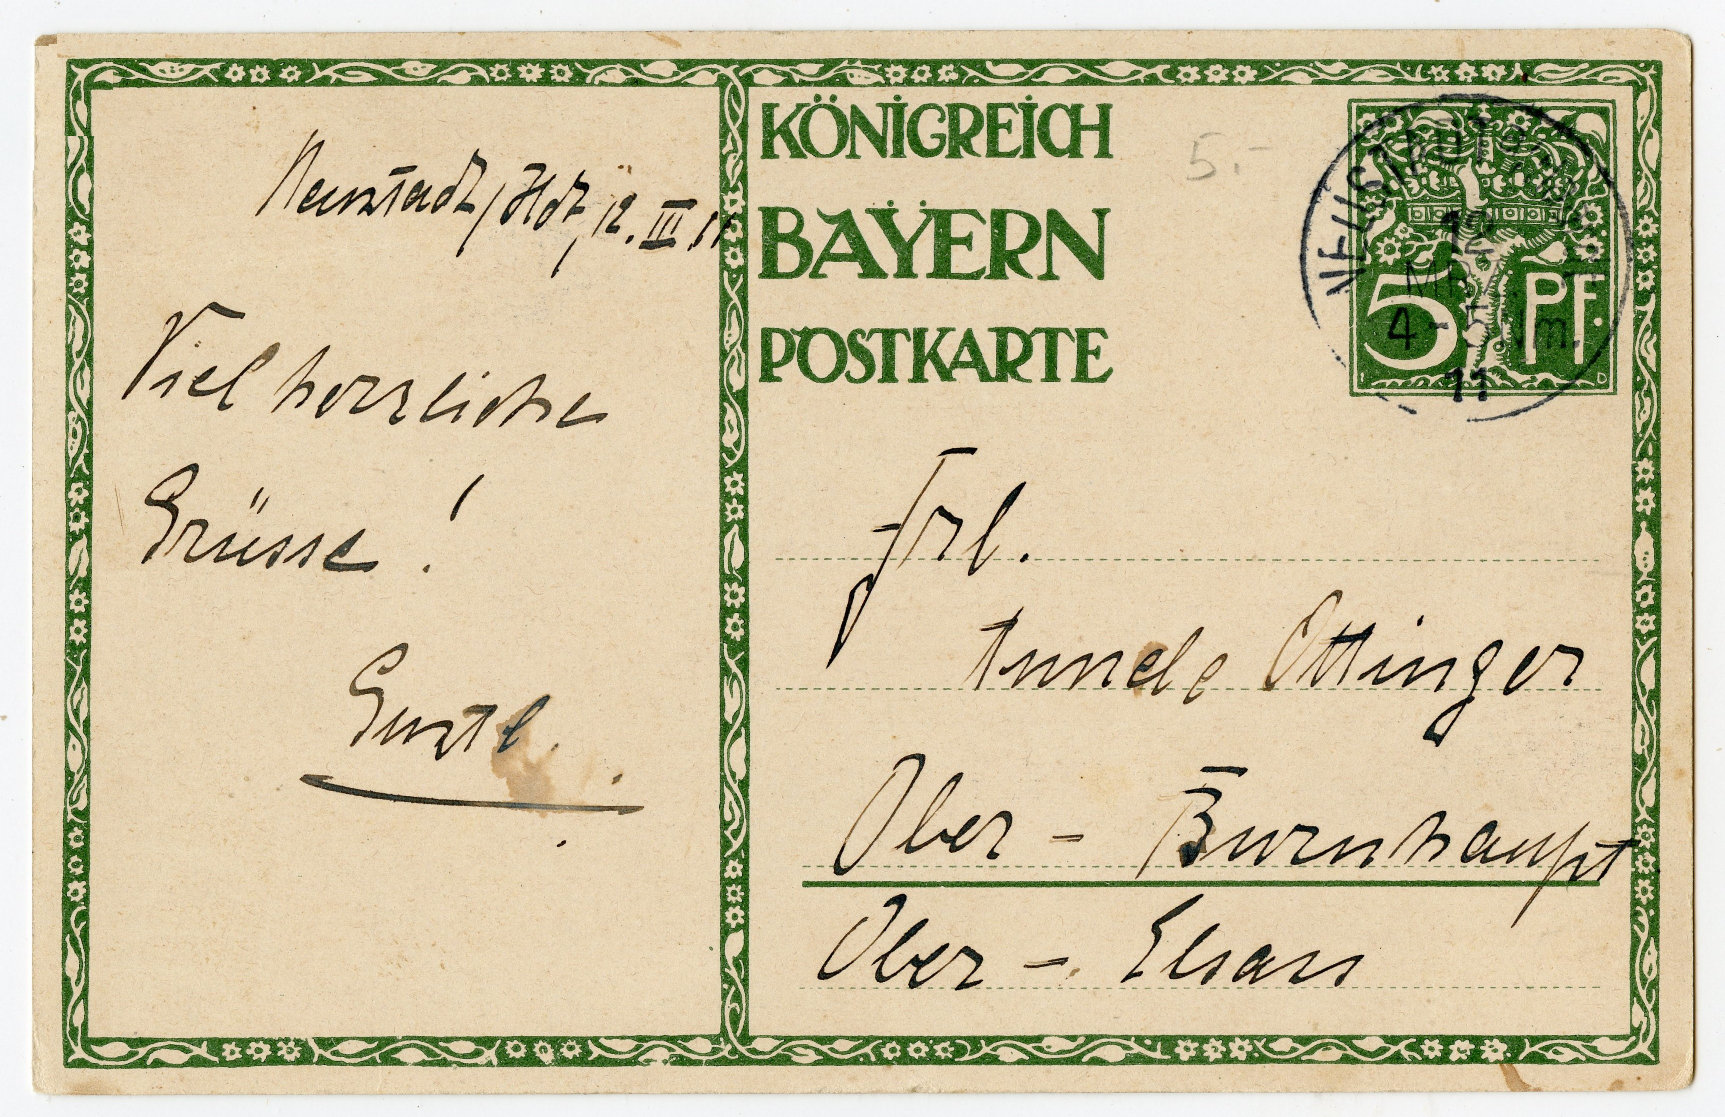 Neustadt/Hdt, 12. III 11
Viel herzliche
Grüsse!
Gustl.
KÖNIGREICH
BAYERN
POSTKARTE
5.-
NEUSTADT
12
MRZ
4-5 Nm.
11
5 PF
Frl.
Annele Ottinger
Ober - Burnhaupt
Ober - Elsass